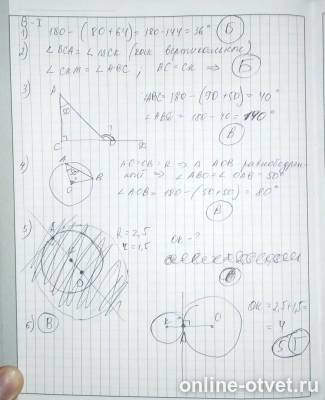 В-1
1) 180-(80+64)=180-144=36° Б
2) ∠BCA = ∠MCK (как вертикальные)
∠CKM = ∠ABC, AC=CK ⇒ Б
3) A ∠ABC=180-(90+50)=40°
50° ∠ABD = 180-40=140°
C 90 В
4) AO=OB=R ⇒ ∆ AOB равнобедрен-
ный ⇒ ∠ABO=∠OAB=50°
∠AOB=180-(50+50)=80°
A B O В
5) R=2,5 OK-?
r=1,5
OK=2,5+1,5=
= 4
O
5 Г
6) В
online-otvet.ru